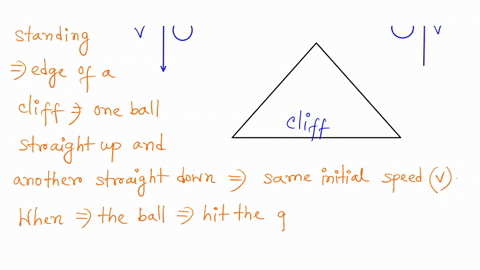 standing v v
⇒ edge of a
cliff ⇒ one ball
cliff
straight up and
another straight down ⇒ same initial speed (v).
When ⇒ the ball ⇒ hit the g